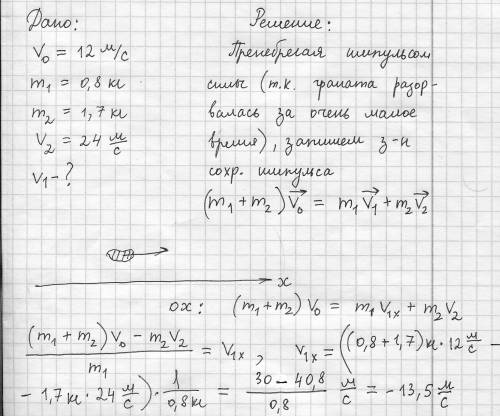 Дано:
V₀ = 12 м/с
m₁ = 0,8 кг
m₂ = 1,7 кг
V₂ = 24 м/с
V₁ - ?
Решение:
Пренебрегая импульсом
силы (т.к. граната разор-
валась за очень малое
время), запишем з-н
сохр. импульса
(m₁ + m₂) V⃗₀ = m₁ V⃗₁ + m₂ V⃗₂
x
ox: (m₁ + m₂) V₀ = m₁ V₁ₓ + m₂ V₂
((m₁ + m₂) V₀ - m₂ V₂) / m₁ = V₁ₓ, V₁ₓ = ((0,8 + 1,7) кг · 12 м/с -
- 1,7 кг · 24 м/с) · 1/0,8 кг = (30 - 40,8)/0,8 м/с = - 13,5 м/с